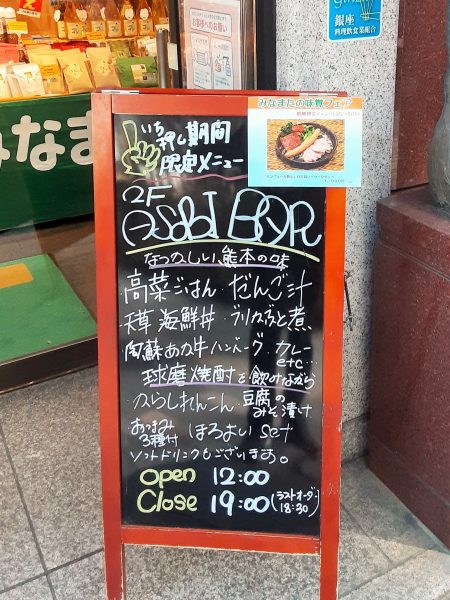 GINZA
銀座
料理飲食業組合
お客様へのお願い
みなま
みなまたの味覚フェア
いち押し期間
限定メニュー
2F
ASOBI BAR
なつかしい、熊本の味
高菜ごはん・だんご汁
天草 海鮮丼・ブリがぶと煮、
阿蘇あか牛ハンバーグ カレー
etc...
球磨焼酎を飲みながら
からしれんこん 豆腐のみそ漬け
おつまみ3種付 ほろよい set
ソフトドリンクもございます。
Open 12:00
Close 19:00 (ラストオーダー18:30)